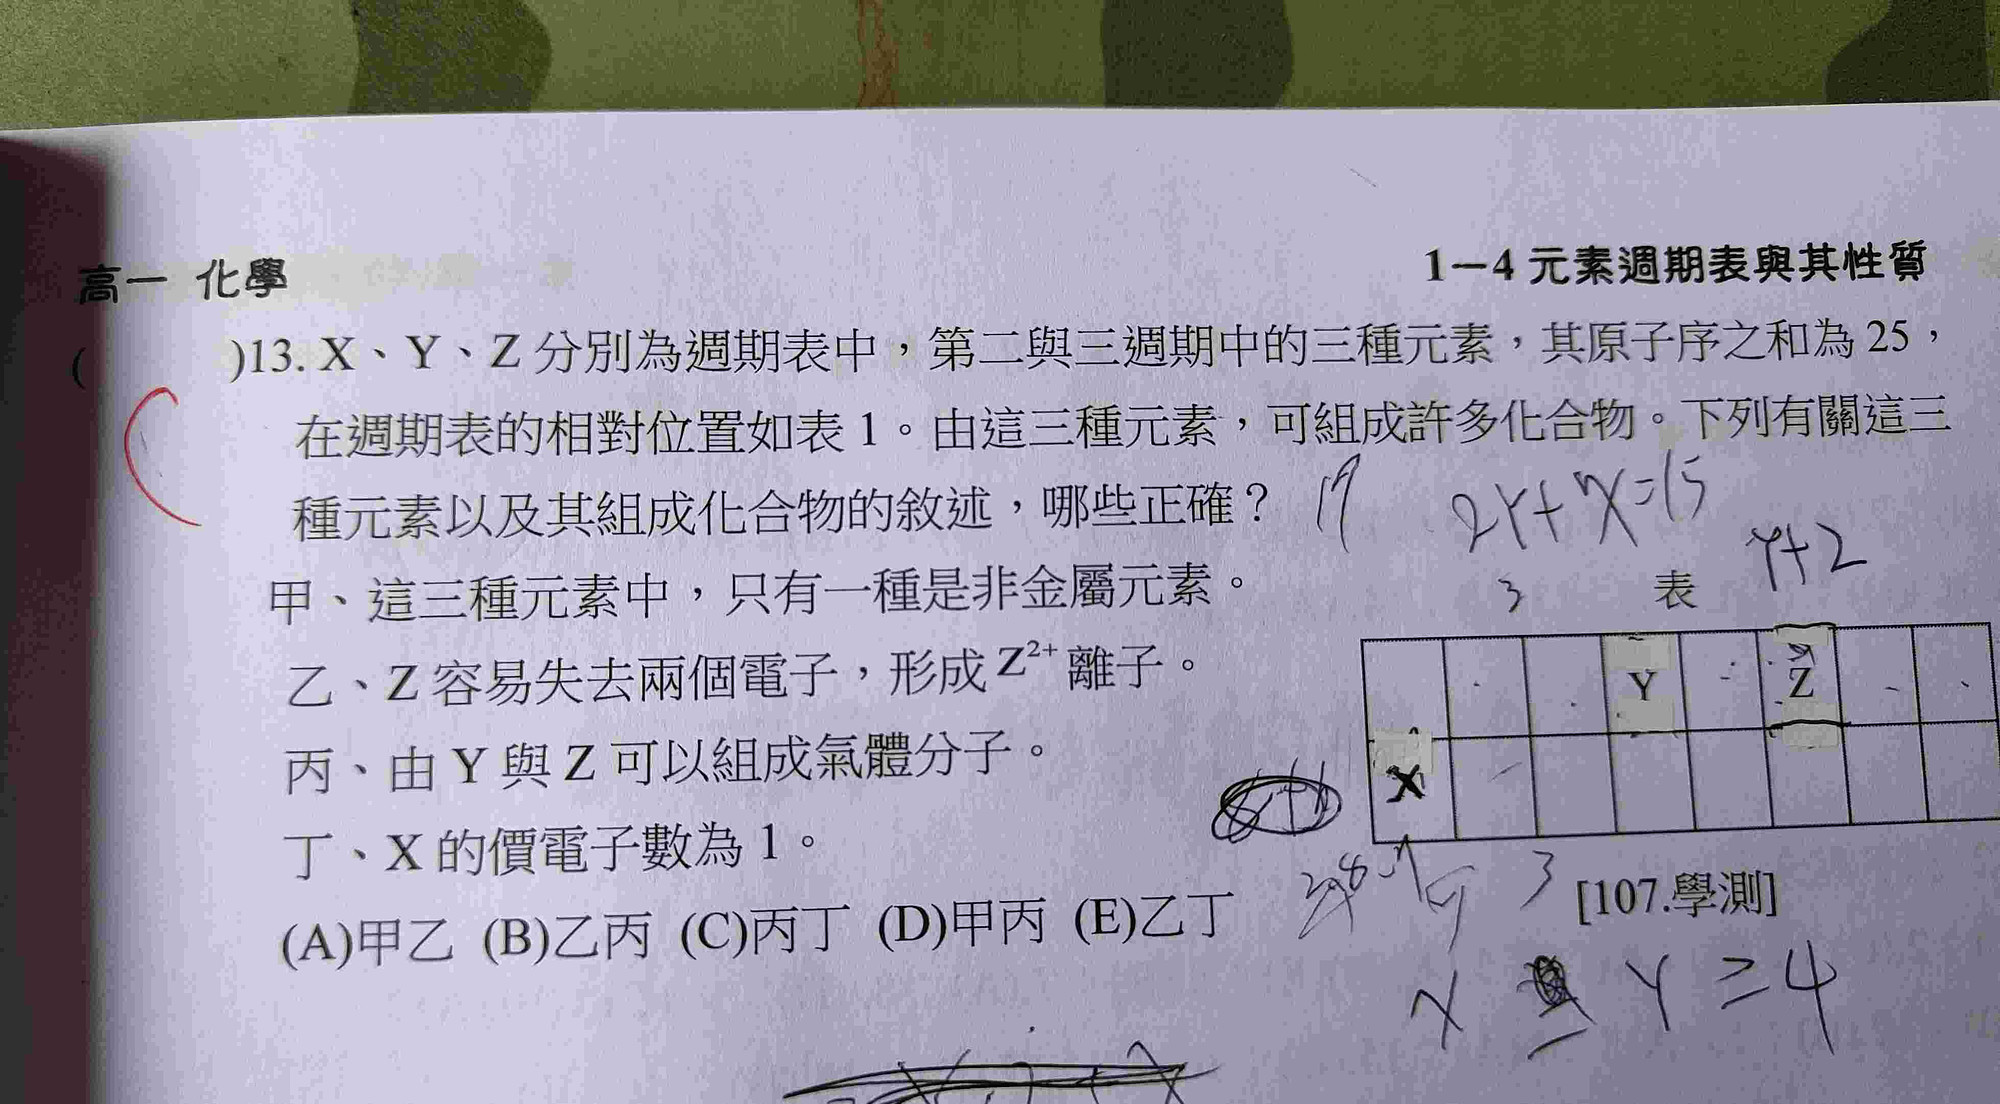 高一 化學
1－4 元素週期表與其性質
( )13. X、Y、Z 分別為週期表中，第二與三週期中的三種元素，其原子序之和為 25，
在週期表的相對位置如表 1。由這三種元素，可組成許多化合物。下列有關這三
種元素以及其組成化合物的敘述，哪些正確？
2Y+X=15
Y+2
甲、這三種元素中，只有一種是非金屬元素。
3
表
乙、Z 容易失去兩個電子，形成 Z²⁺ 離子。
Y
Z
丙、由 Y 與 Z 可以組成氣體分子。
X
丁、X 的價電子數為 1。
3
[107.學測]
(A)甲乙 (B)乙丙 (C)丙丁 (D)甲丙 (E)乙丁
X
Y=4